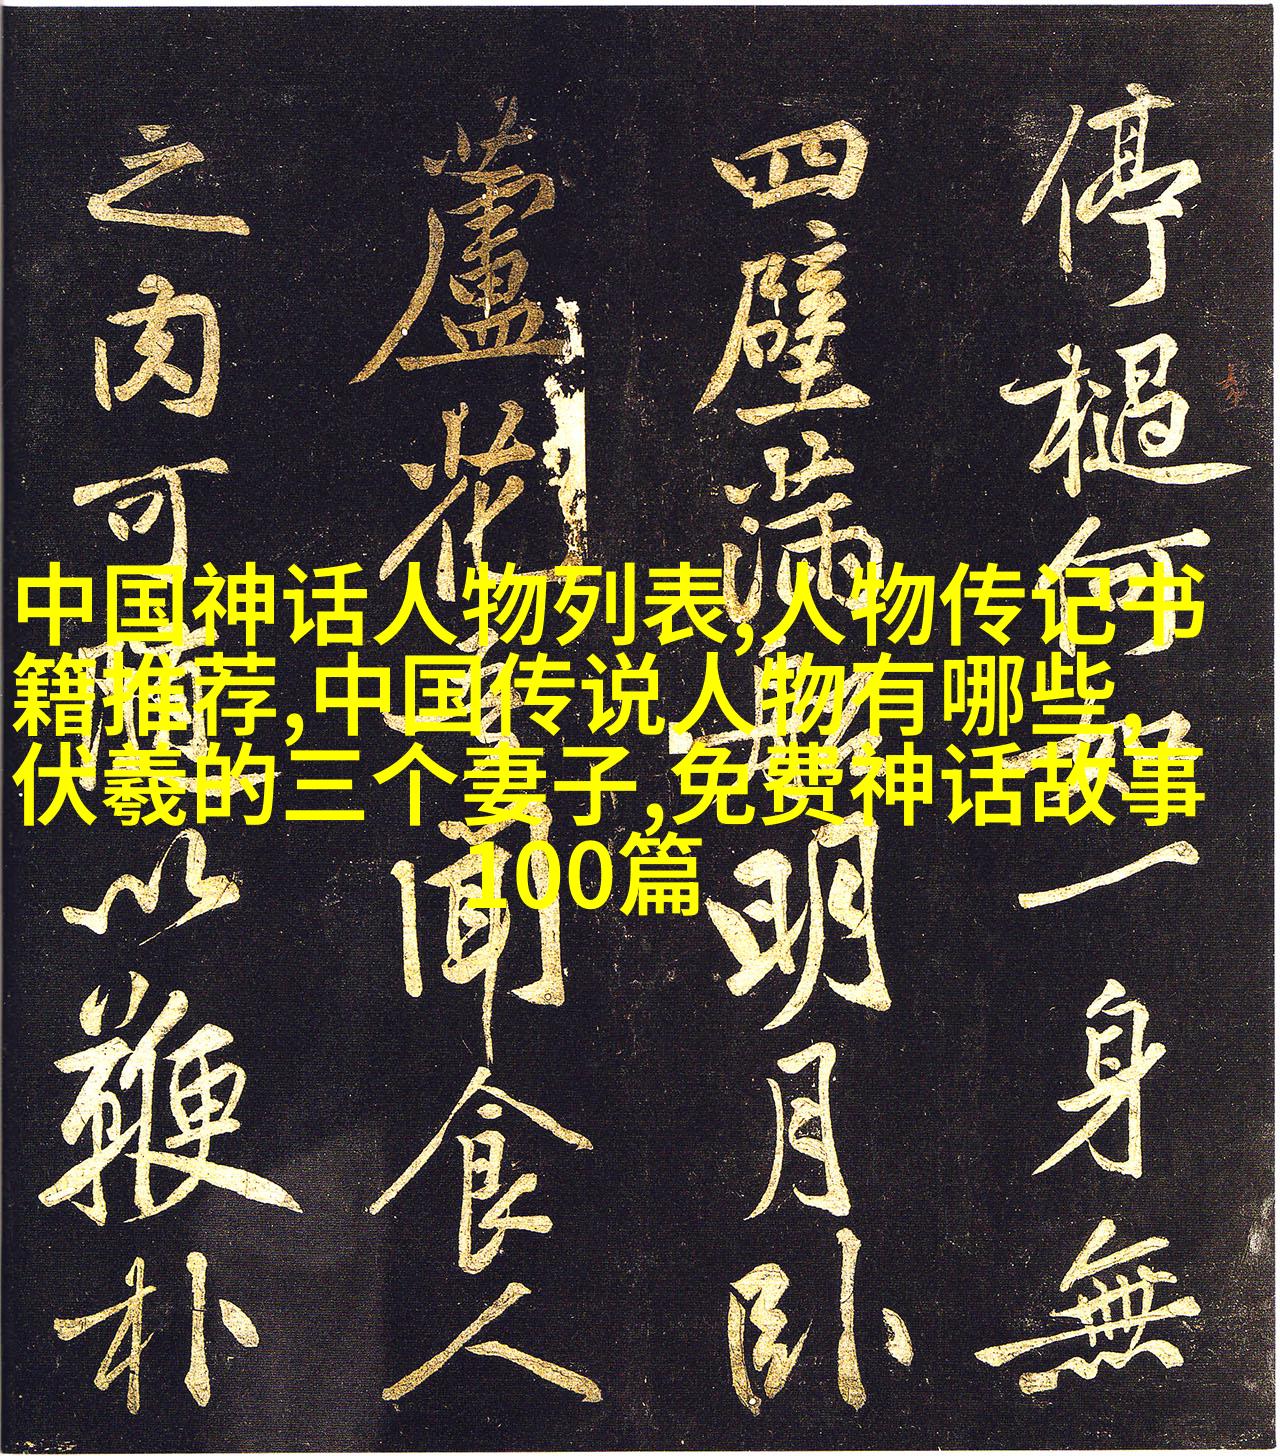 停檛何如一身無
四壁滿牀明月卧
蘆花
聞食人
之肉可隨以鞭朴
中国神话人物列表,人物传记书
籍推荐,中国传说人物有哪些,
伏羲的三个妻子,免费神话故事
100篇